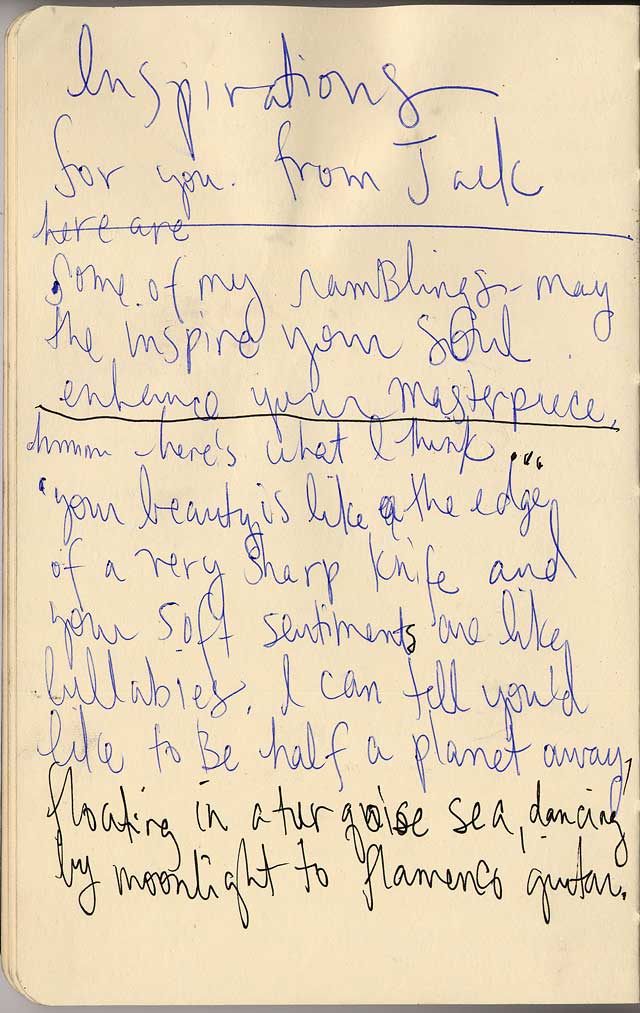 Inspirations
for you. from Jack
here are
Some of my ramBlings - may
the inspire your soul
enhance your masterpiece.
hmmm here's what I think...
"your beauty is like a the edge
of a very sharp knife and
your soft sentiments are like
lullabies. I can tell you'd
like to Be half a planet away,
floating in a turquoise sea, dancing
by moonlight to flamenco guitar.